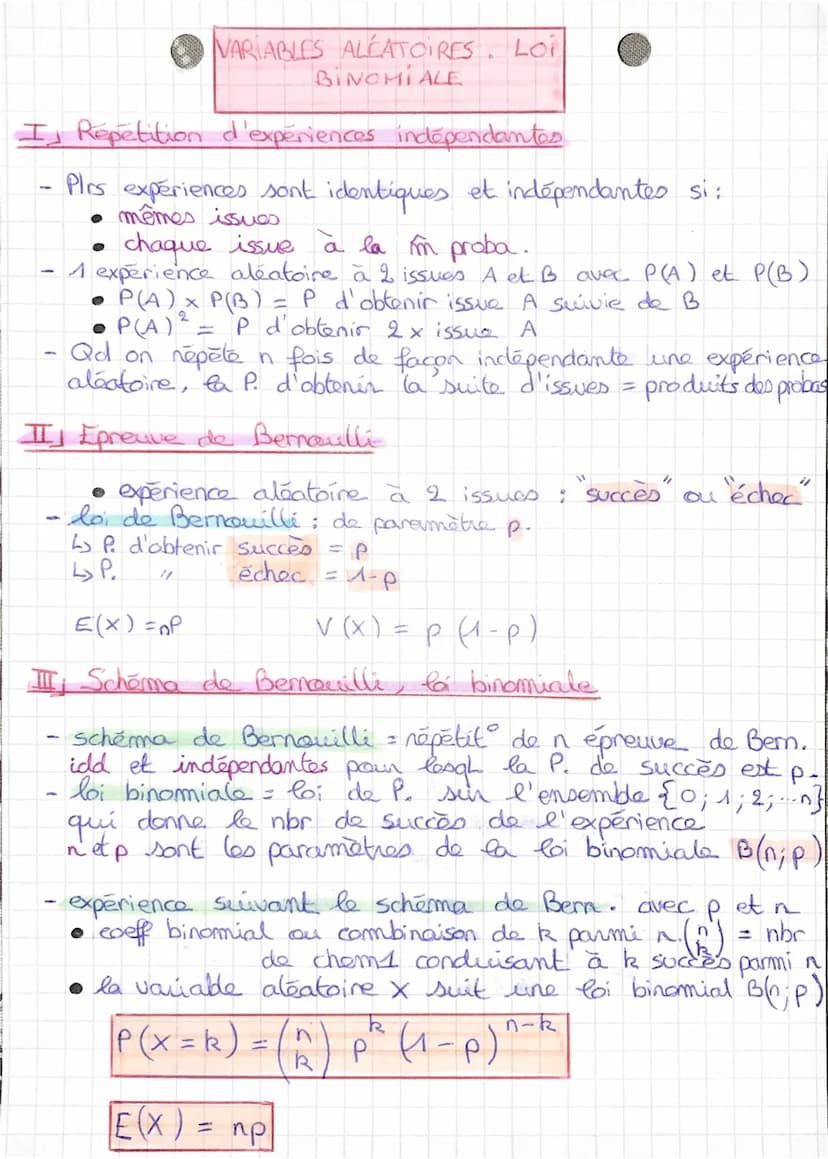 VARIABLES ALÉATOIRES. LOI
BINOMIALE
I, Répétition d'expériences indépendantes
- Plrs expériences sont identiques et indépendantes si :
• mêmes issues
• chaque issue à la m̂ proba.
- 1 expérience aléatoire à 2 issues A et B avec P(A) et P(B)
• P(A) × P(B) = P d'obtenir issue A suivie de B
• P(A)² = P d'obtenir 2 × issue A
- Qd on répète n fois de façon indépendante une expérience
aléatoire, la P. d'obtenir la suite d'issues = produits des probas
II, Epreuve de Bernoulli
• expérience aléatoire à 2 issues : "succès" ou "échec"
- loi de Bernouilli : de paramètre p.
↳ P. d'obtenir succès = p
↳ P. " échec = 1-p
E(X) = np V(X) = p (1-p)
III, Schéma de Bernouilli, loi binomiale
- schéma de Bernouilli = répétit° de n épreuve de Bern.
idd et indépendantes pour lesql la P. de succès est p.
- loi binomiale = loi de P. sur l'ensemble {0; 1; 2; ...n}
qui donne le nbr de succès de l'expérience
n et p sont les paramètres de la loi binomiale B(n;p)
- expérience suivant le schéma de Bern. avec p et n
• coeff binomial ou combinaison de k parmi n (n k) = nbr
de chem1 conduisant à k succès parmi n
• la variable aléatoire X suit une loi binomial B(n;p)
P(X=k) = (n k) p^k (1-p)^n-k
E(X) = np